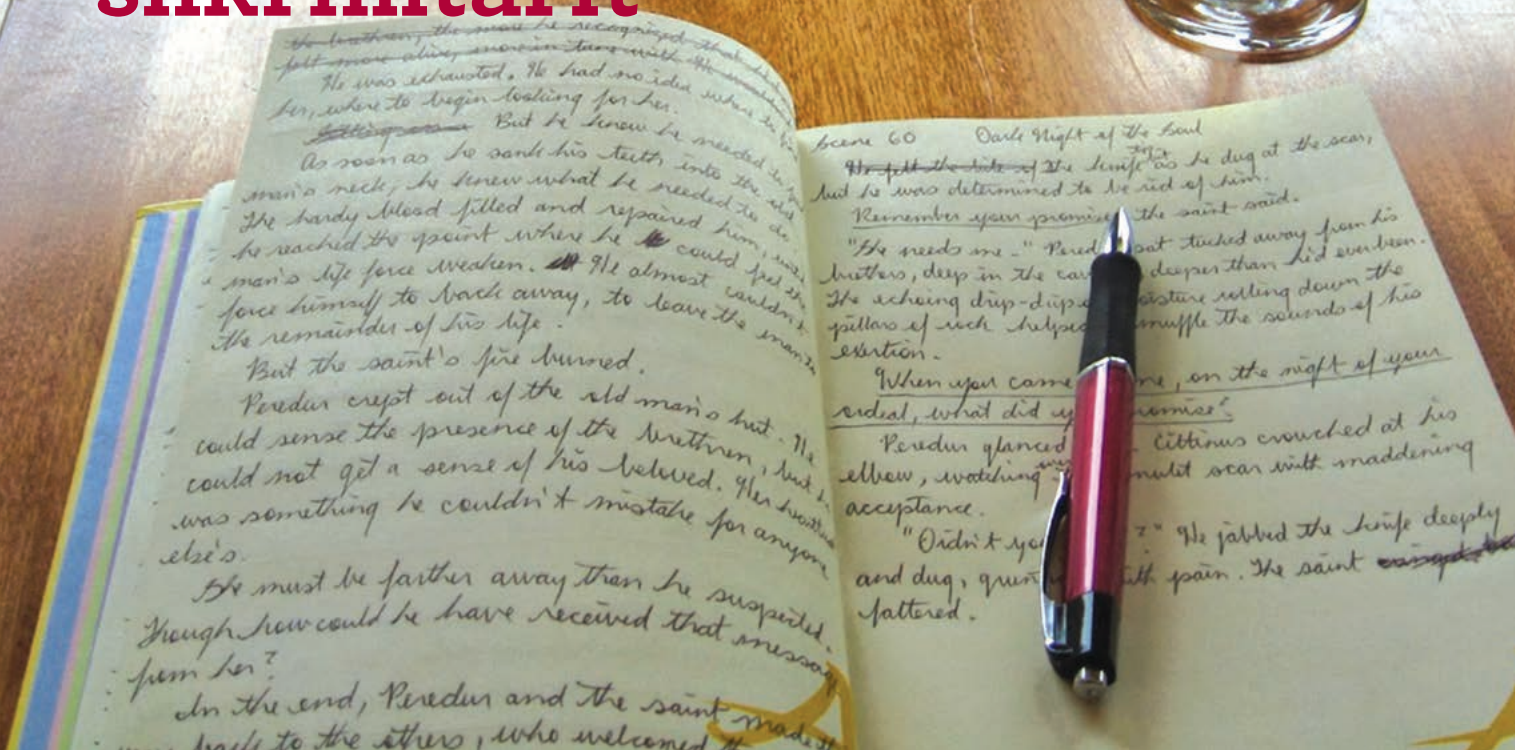 the brethren, the more he recognized that he
felt more alive, more in tune with
He was exhausted. He had no idea where to
her, where to begin looking for her.
But he knew he needed to
As soon as he sank his teeth into the old
man's neck, he knew what he needed to do
The hardy blood filled and repaired him, until
he reached the point where he could feel the
man's life force weaken. He almost couldn't
force himself to back away, to leave the man to
the remainder of his life.
But the saint's fire burned.
Peredur crept out of the old man's hut. He
could sense the presence of the brethren, but
could not get a sense of his beloved. Her
was something he couldn't mistake for anyone
else's.
She must be farther away than he suspected.
Though how could he have received that messag
from her?
In the end, Peredur and the saint made
back to the others, who welcomed
Scene 60 Dark Night of the Soul
He felt the bite of The knife as he dug at the scar,
but he was determined to be rid of him.
Remember your promise, the saint said.
"She needs me." Pered sat tucked away from his
brothers, deep in the cav deeper than he'd ever been.
The echoing drip-drip o oisture rolling down the
pillars of rock helped muffle the sounds of his
exertion.
When you came me, on the night of your
ordeal, what did y romise?
Peredur glanced Cittinus crouched at his
elbow, watching mulet scar with maddening
acceptance.
"Didn't yo ?" He jabbed the knife deeply
and dug, grun ith pain. The saint
faltered.